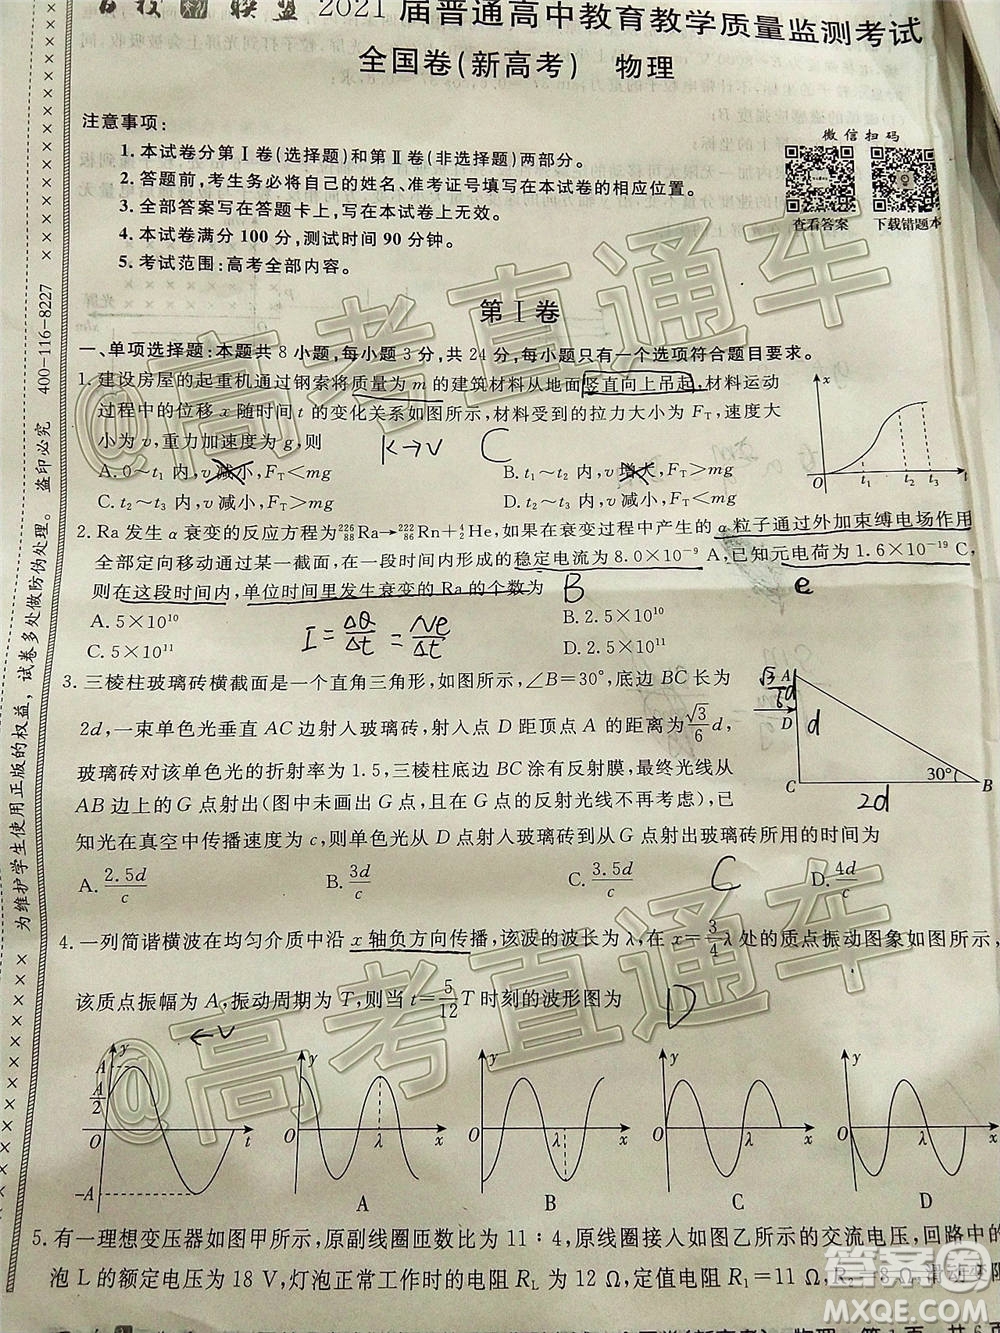 百校联盟 2021届普通高中教育教学质量监测考试
全国卷(新高考) 物理
注意事项:
1. 本试卷分第Ⅰ卷(选择题)和第Ⅱ卷(非选择题)两部分。
2. 答题前,考生务必将自己的姓名、准考证号填写在本试卷的相应位置。
3. 全部答案写在答题卡上,写在本试卷上无效。
4. 本试卷满分100分,测试时间90分钟。
5. 考试范围:高考全部内容。
微信扫码
查看答案 下载错题本
为维护学生使用正版的权益,试卷多处做防伪处理。盗印必究 400-116-8227
第Ⅰ卷
一、单项选择题:本题共8小题,每小题3分,共24分,每小题只有一个选项符合题目要求。
1. 建设房屋的起重机通过钢索将质量为m的建筑材料从地面竖直向上吊起,材料运动
过程中的位移x随时间t的变化关系如图所示,材料受到的拉力大小为F_T,速度大
小为v,重力加速度为g,则
K→v C
A. 0~t₁内,v减小,F_T<mg B. t₁~t₂内,v增大,F_T>mg
C. t₂~t₃内,v减小,F_T<mg D. t₂~t₃内,v减小,F_T>mg
x
O t₁ t₂ t₃ t
2. Ra发生α衰变的反应方程为²²⁶₈₈Ra→²²²₈₆Rn+⁴₂He,如果在衰变过程中产生的α粒子通过外加束缚电场作用
全部定向移动通过某一截面,在一段时间内形成的稳定电流为8.0×10⁻⁹ A,已知元电荷为1.6×10⁻¹⁹ C,
则在这段时间内,单位时间里发生衰变的Ra的个数为 B e
A. 5×10¹⁰ B. 2.5×10¹⁰
C. 5×10¹¹ D. 2.5×10¹¹
I=ΔQ/Δt=Ne/Δt
3. 三棱柱玻璃砖横截面是一个直角三角形,如图所示,∠B=30°,底边BC长为
2d,一束单色光垂直AC边射入玻璃砖,射入点D距顶点A的距离为√3/6 d,
玻璃砖对该单色光的折射率为1.5,三棱柱底边BC涂有反射膜,最终光线从
AB边上的G点射出(图中未画出G点,且在G点的反射光线不再考虑),已
知光在真空中传播速度为c,则单色光从D点射入玻璃砖到从G点射出玻璃砖所用的时间为
A. 2.5d/c B. 3d/c C. 3.5d/c C D. 4d/c
√3/6 d A
D d
C 30° B
2d
4. 一列简谐横波在均匀介质中沿x轴负方向传播,该波的波长为λ,在x=3/4λ处的质点振动图象如图所示,
该质点振幅为A,振动周期为T,则当t=5/12T时刻的波形图为 D
←v
y A A/2 O t -A
y O λ x A
y O λ x B
y O λ x C
y O λ x D
5. 有一理想变压器如图甲所示,原副线圈匝数比为11∶4,原线圈接入如图乙所示的交流电压,回路中的
泡L的额定电压为18 V,灯泡正常工作时的电阻R_L为12 Ω,定值电阻R₁=11 Ω,R₂=8 Ω,滑动变阻
@高考直通车
@高考直通车
答案圈
MXQE.COM